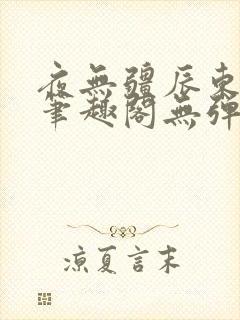 夜無疆辰東
筆趣閣無彈
涼夏言末